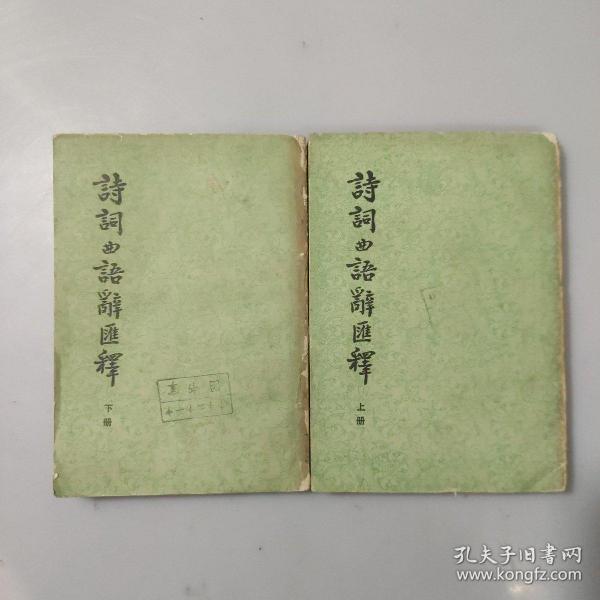 詩詞曲語辭匯釋
下册
詩詞曲語辭匯釋
上册
图书室
孔夫子旧书网
www.kongfz.com